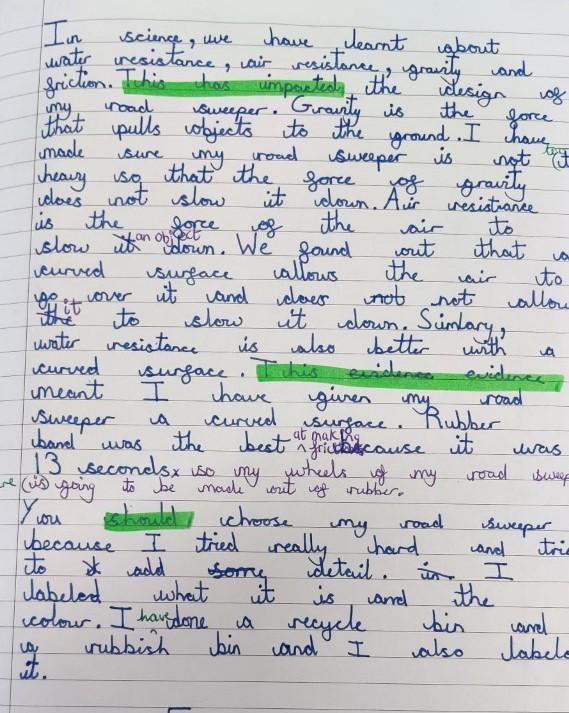 In science, we have learnt about
water resistance, air resistance, gravity and
friction. This has impacted the design of
my road sweeper. Gravity is the force
that pulls objects to the ground. I have
made sure my road sweeper is not too
heavy so that the force of gravity
does not slow it down. Air resistance
is the force of the air to
slow it an object down. We found out that a
curved surface allows the air to
go over it and does not not allow
the it to slow it down. Simlary,
water resistance is also better with a
curved surface. This evidence evidence
meant I have given my road
sweeper a curved surface. Rubber
band was the best at making friction because it was
13 seconds so my wheels of my road sweep
(is) going to be made out of rubber.
You should choose my road sweeper
because I tried really hard and tri
to add some detail. in I
labeled what it is and the
colour. I have done a recycle bin and
a rubbish bin and I also labele
it.